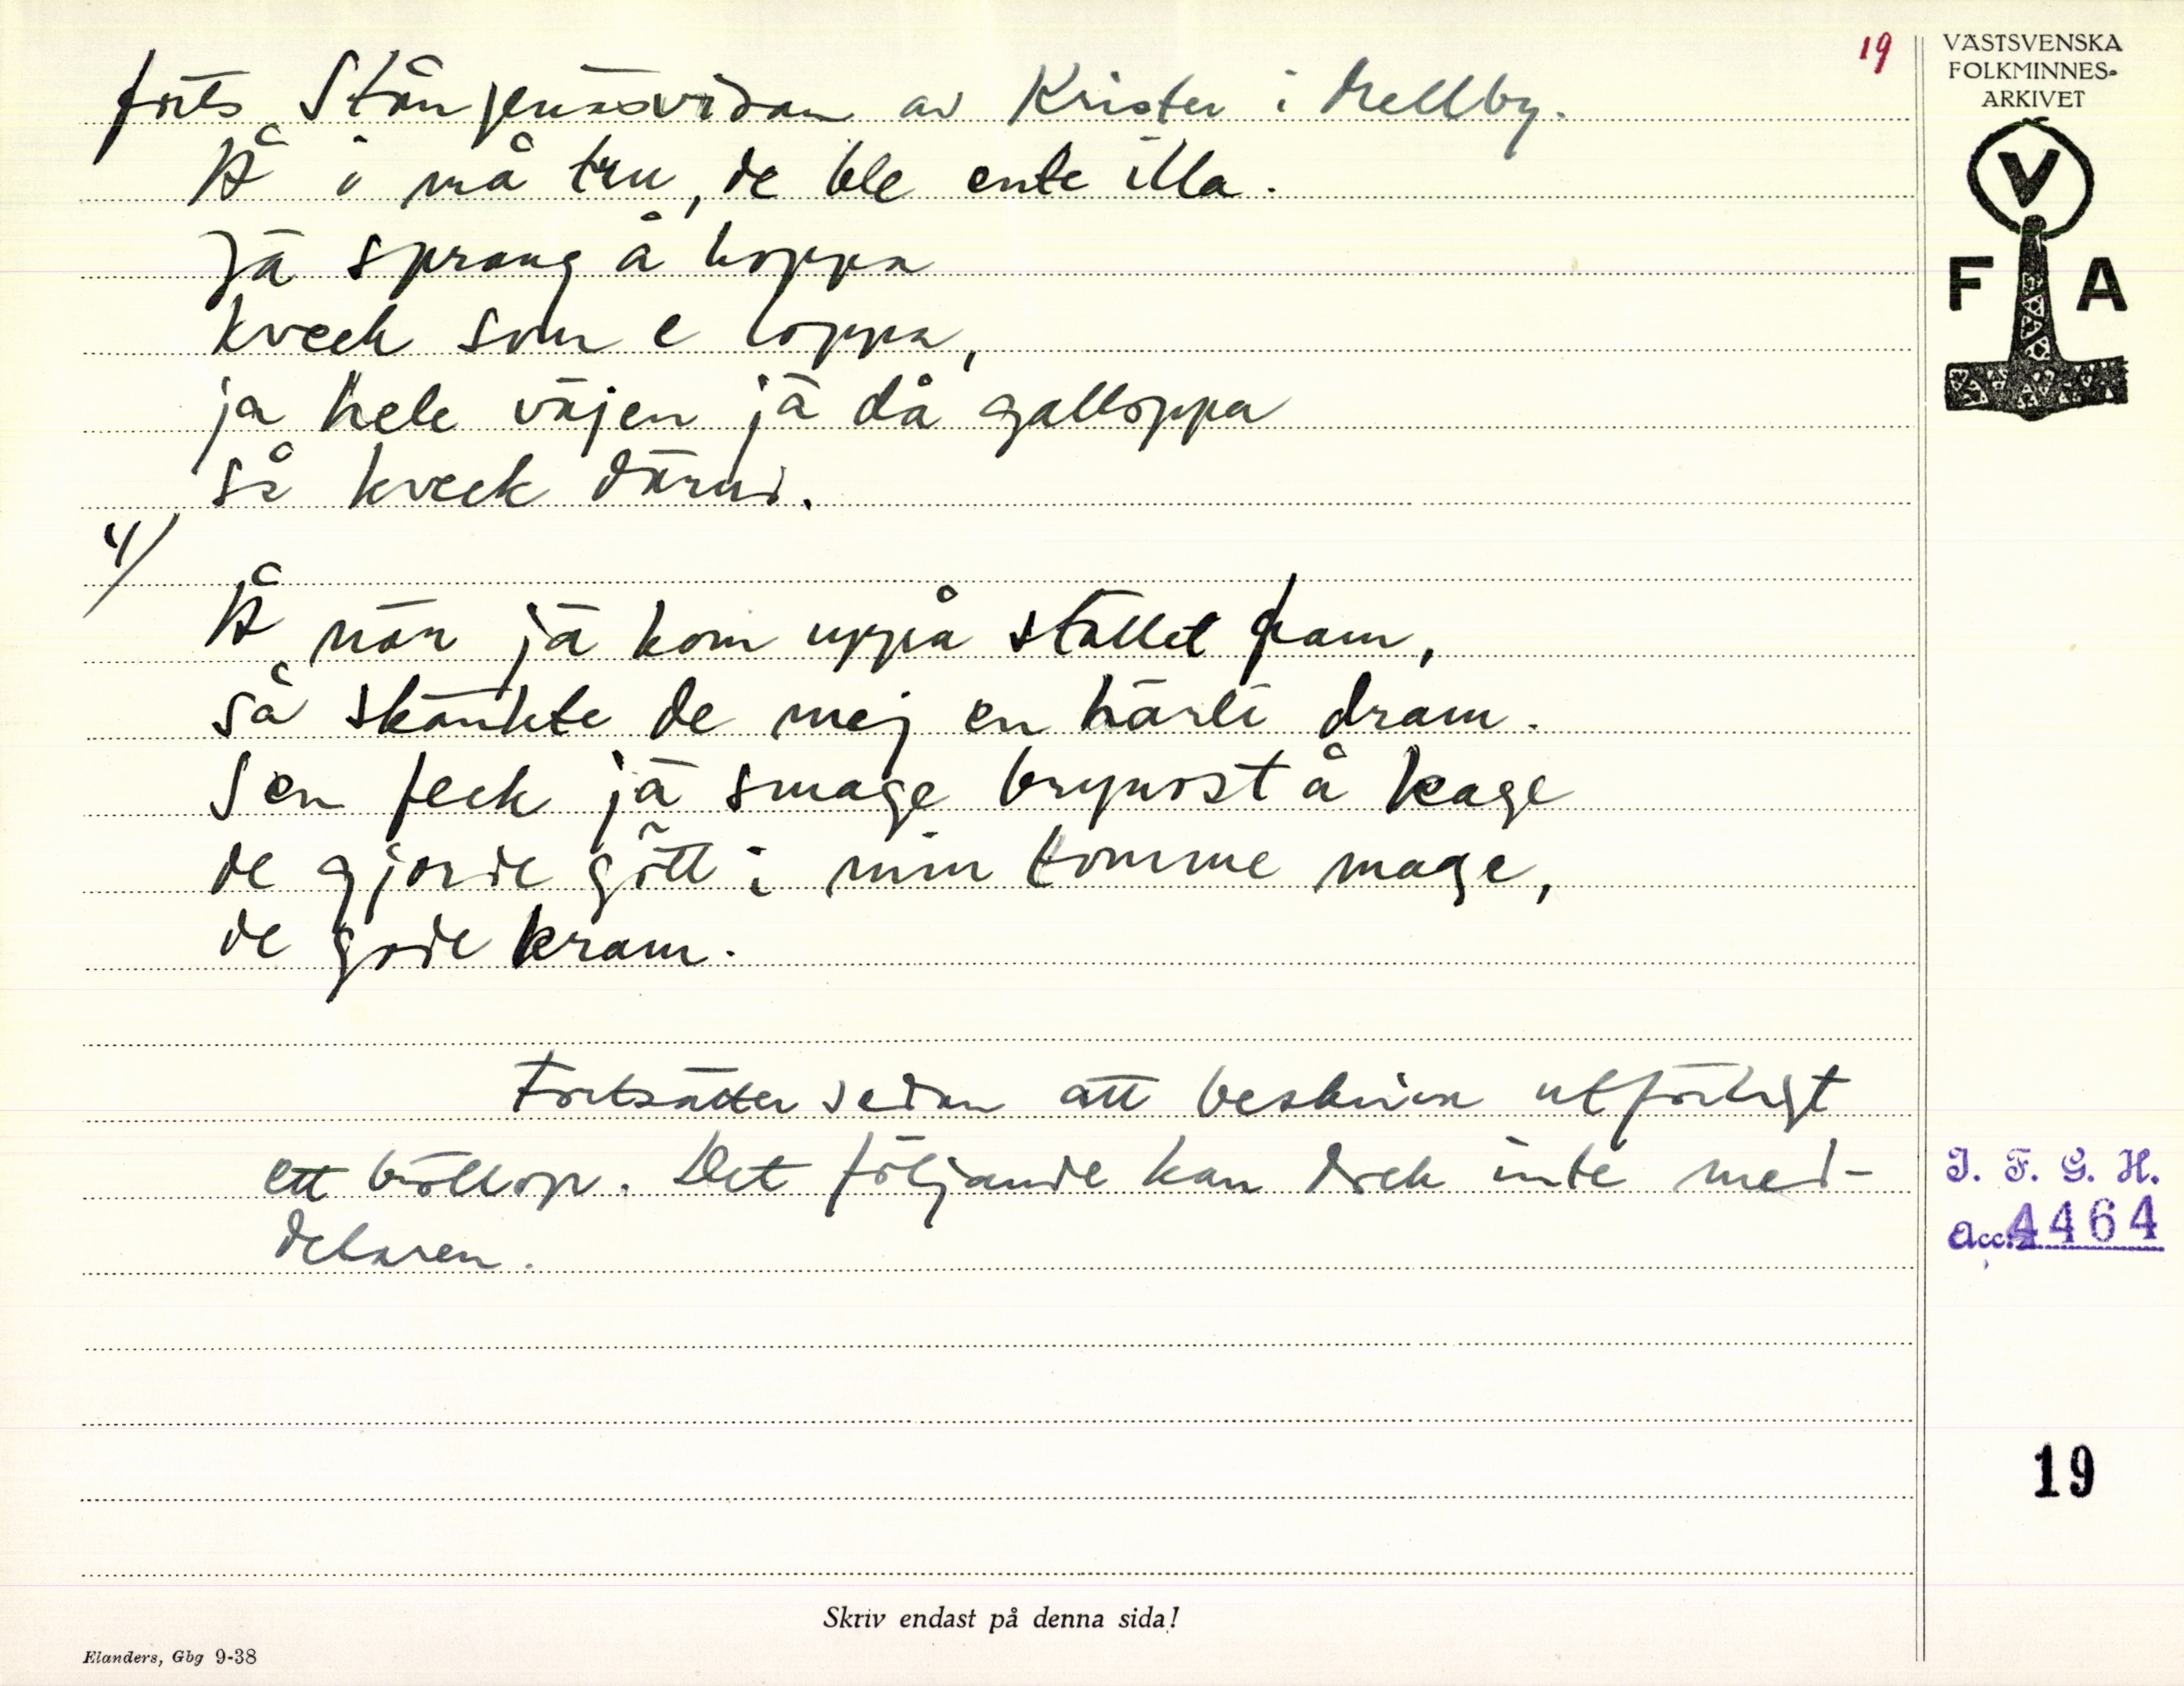 19
VÄSTSVENSKA
FOLKMINNES-
ARKIVET
V
F A
forts Stångenäsvisan av Krister i Mellby.
Å i må tru, de ble ente illa.
Jä sprang å hoppa
kveck som e loppa,
ja hele väjen jä då galloppa
så kveck därvi.
4/
Å när jä kom uppå stället fram,
så skänkte de mej en härli dram.
Sen feck jä smage brynost å kage
de gjorde gött i min tomme mage,
de gode kram.
Fortsätter sedan att beskriva utförligt
ett bröllop. Det följande kan dock inte med-
delaren.
I. F. G. H.
Acc. 4464
19
Skriv endast på denna sida!
Elanders, Gbg 9-38